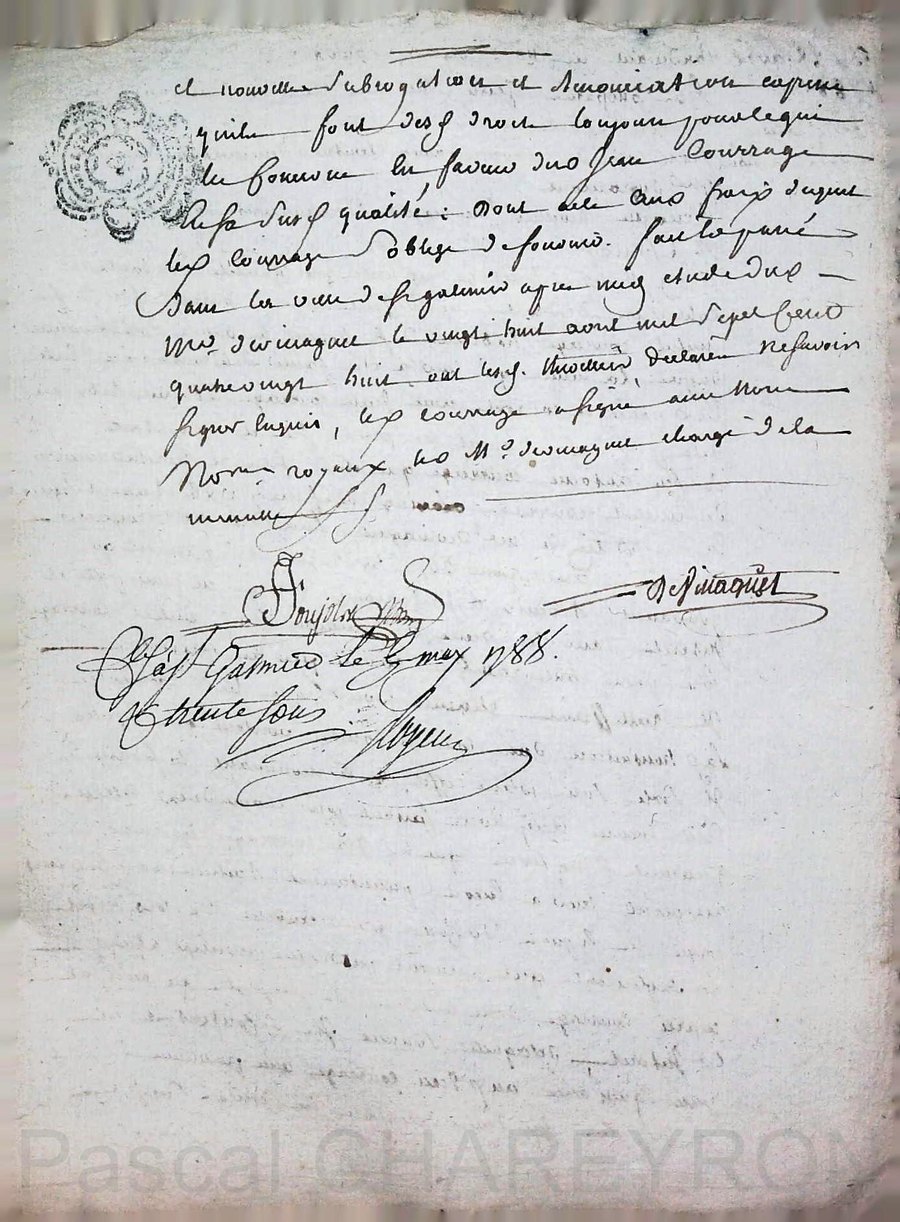 et nouvelle subrogation et renonciation expresse
quils font desd droit toujour pour ce qui
les concerne en faveur dud Jean Courrage
qualité : dont acte aux fraix duquel
led Courrage s'oblige de fournir. fait et passé
dans la ville de St galmier apres midy etude dud
Me. Denimaquet le vingt huit avril mil sept cent
quatrevingt huit ont lesd. declaré ne savoir
signer enquis, led Courrage a signé avec Nous
Nores royaux led Me. Denimaquet chargé de la
minutte
Denimaquet
a St Galmier Le 5 may 1788.
R trente sous
Pascal CHAREYRON